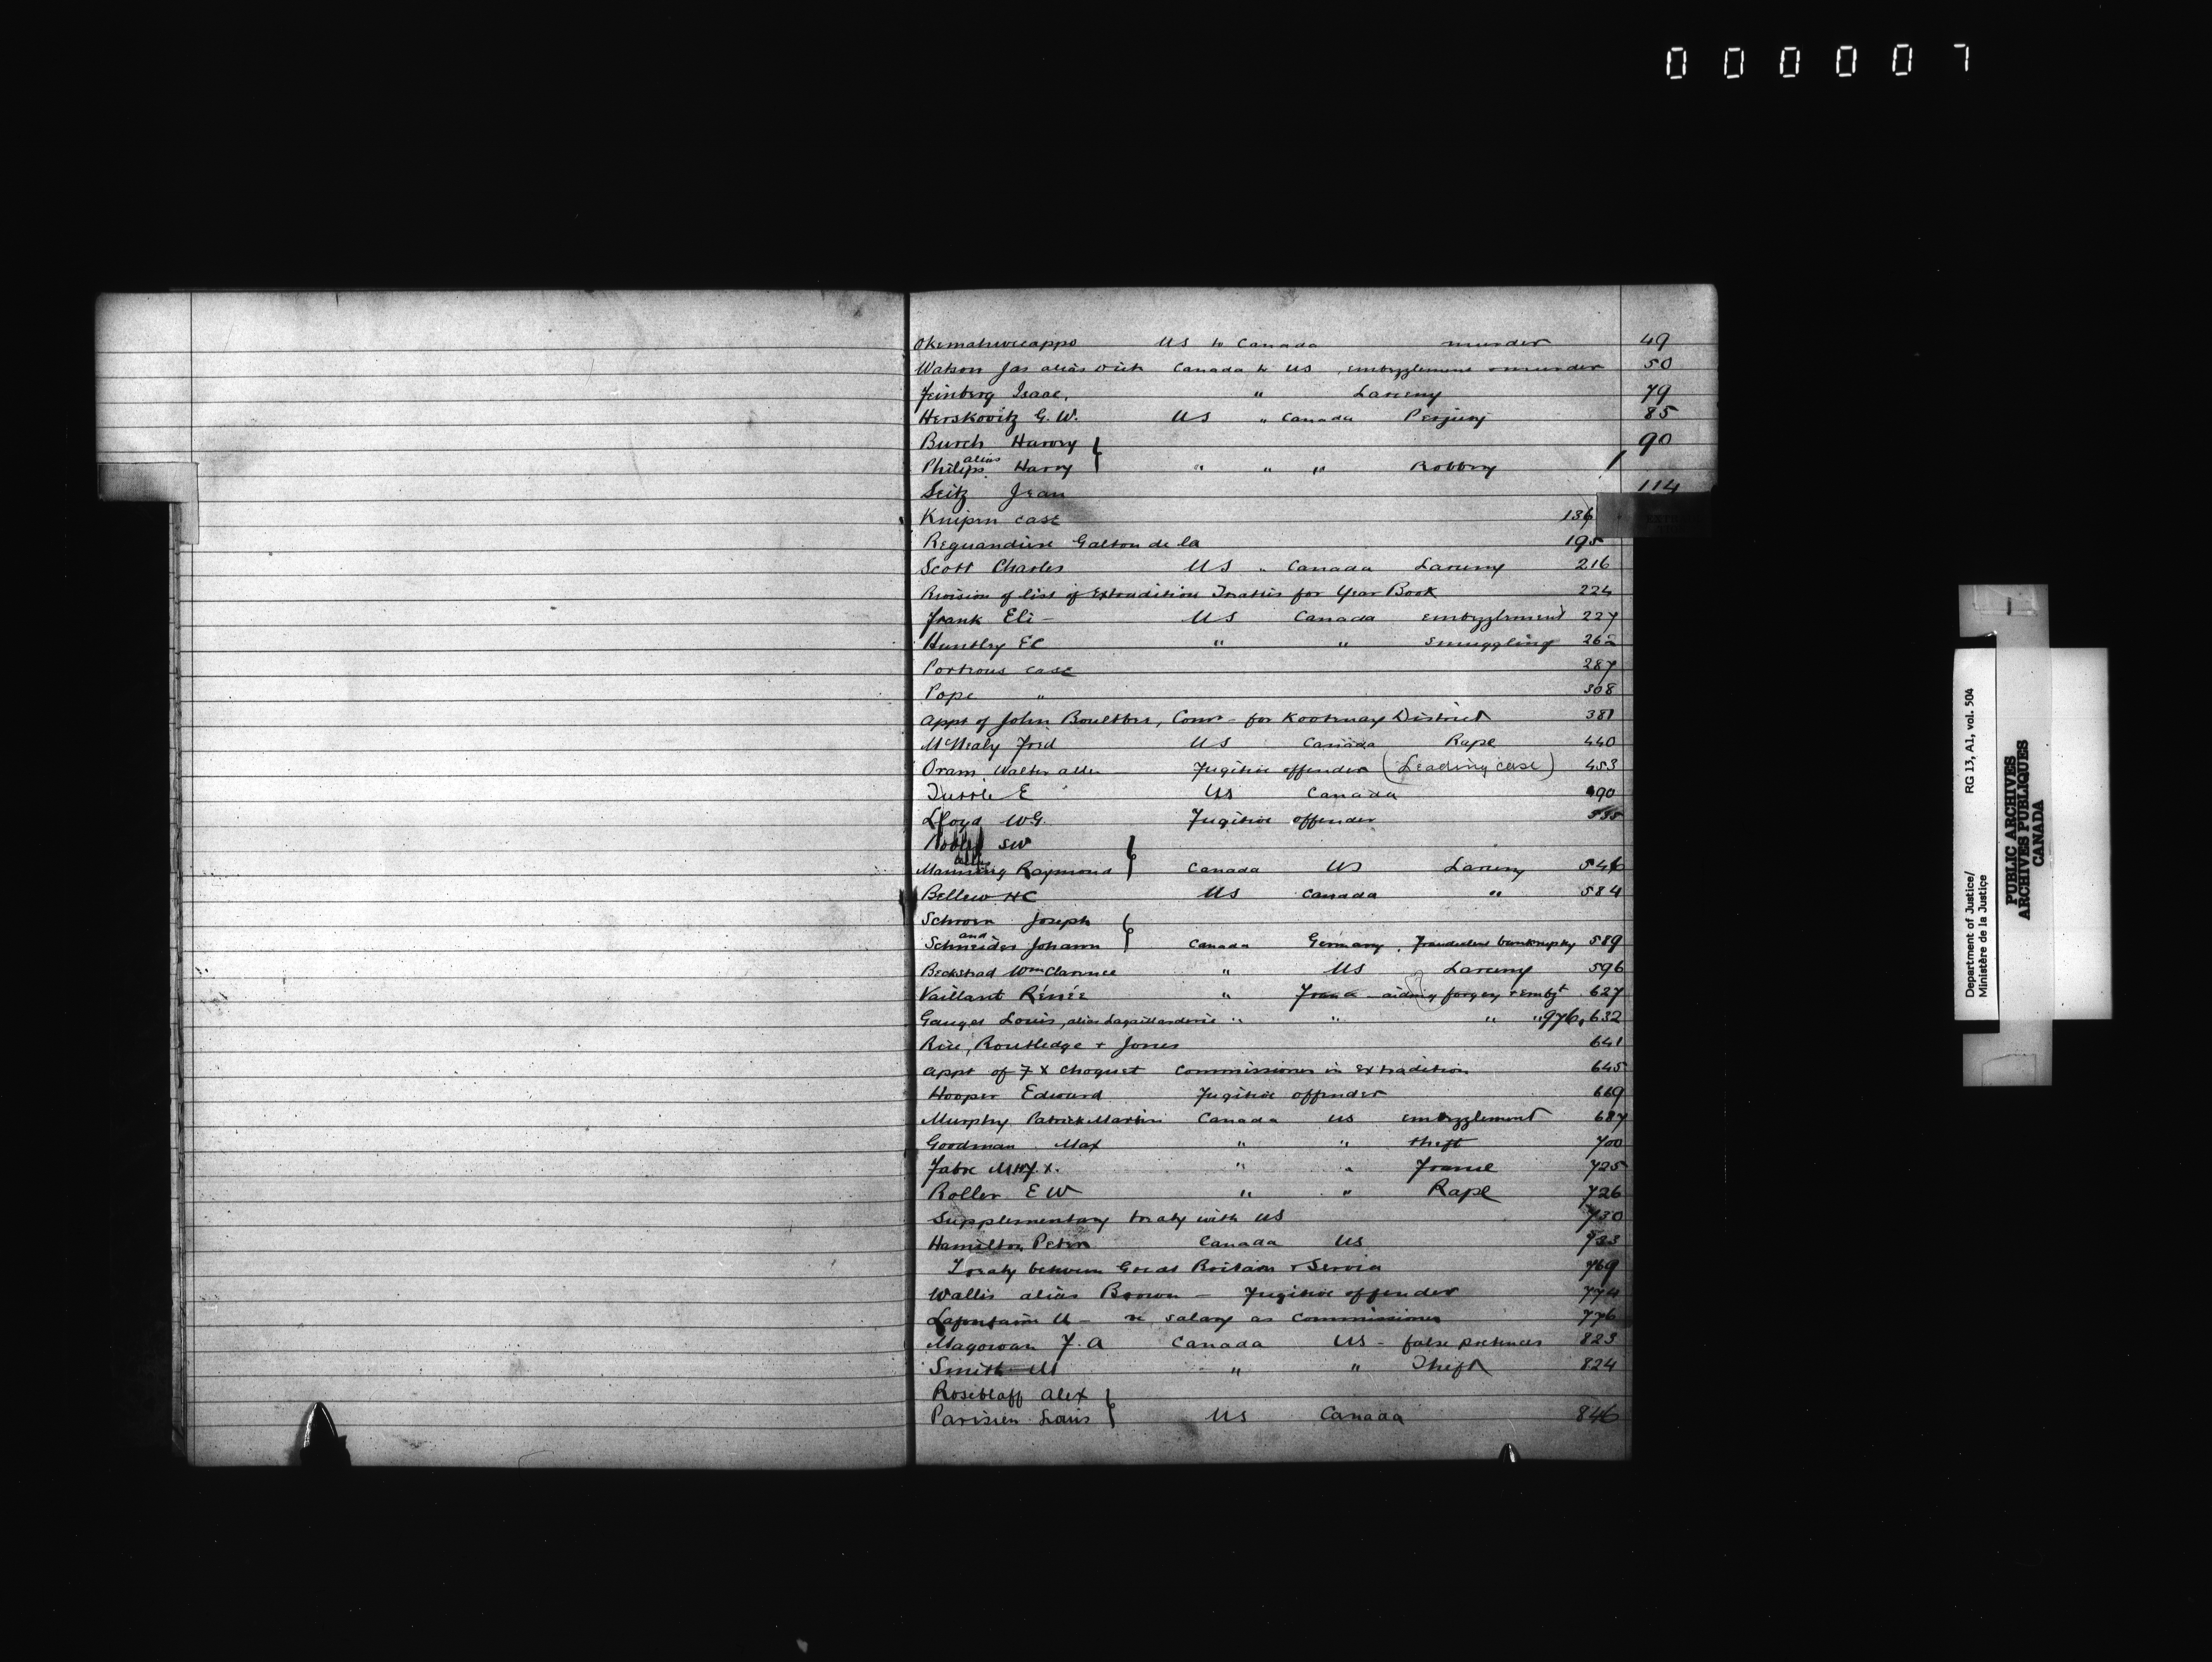 000007
Okemahweeappo US to Canada murder 49
Watson Jas alias Canada to US embezzlement & murder 50
Feinberg Isaac, " Larceny 79
Herskovitz G. W. US " Canada Perjury 85
Burch Harvey 90
alias
Philips Harry " " " Robbery
Seitz Jean 114
Knipin case 136
Galton de la 195
Scott Charles US " Canada Larceny 216
Revision of list of Extradition Treaties for Year Book 224
Frank Eli - US Canada embezzlement 227
Huntley EC " " Smuggling 262
Porteous case 287
Pope " 308
Appt of John Boultbee, Comr - for Kootenay District 381
McNealy Fred US Canada Rape 440
Oram Walter - Fugitive offender (Leading case) 453
Tuttle E US Canada 490
Lloyd W.G. Fugitive offender 535
SW
alias
Manning Raymond Canada US Larceny 546
Bellew HC US Canada " 584
Schroen Joseph
and
Schneider Johann Canada Germany, fraudulent bankruptcy 589
Beckstead Wm Clarence " US Larceny 596
Vaillant Rénée " France - aiding forgery & embzt 627
Gauget Louis, alias Lagaillarderie " " " " 976, 632
Rice, Routledge & Jones 641
Appt of F X Choquet Commissioner in Extradition 645
Hooper Edward Fugitive offender 669
Murphy Patrick Martin Canada US embezzlement 687
Goodman Max " " theft 700
Fabre " " France 725
Roller E W " " Rape 726
Supplementary treaty with US 730
Hamilton Peter Canada US 733
Treaty between Great Britain & Servia 769
Wallis alias Brown - Fugitive offender 774
Lafontaine U - re salary as Commissioner 776
Magowan F. A Canada US - false pretences 823
Smith M " " Theft 824
Roseblaff Alex
Parisien Louis US Canada 846
Department of Justice/ RG 13, A1, vol. 504
Ministère de la Justice
PUBLIC ARCHIVES
ARCHIVES PUBLIQUES
CANADA